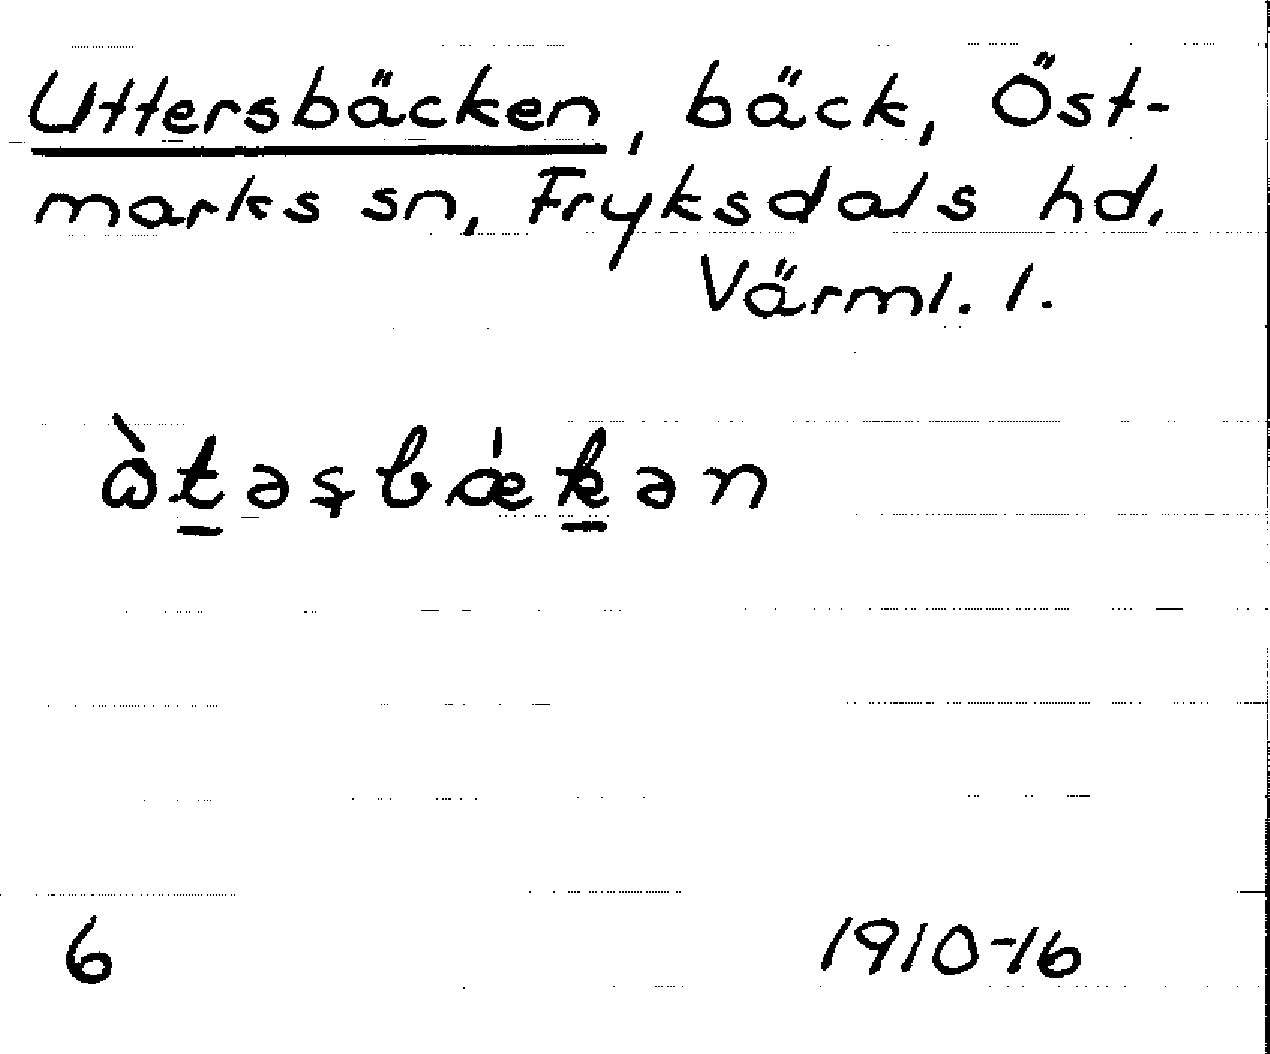 Uttersbäcken, bäck, Öst-
marks sn, Fryksdals hd,
Värml. l.
ὼt̲əşbǽk̲ən
6 1910-16